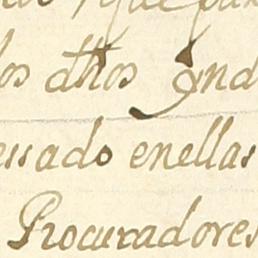 los dhos Ynd
essado enellas
Procuradores